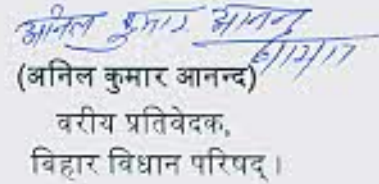 अनिल कुमार आनन्द
6/12/17
(अनिल कुमार आनन्द)
वरीय प्रतिवेदक,
बिहार विधान परिषद् ।